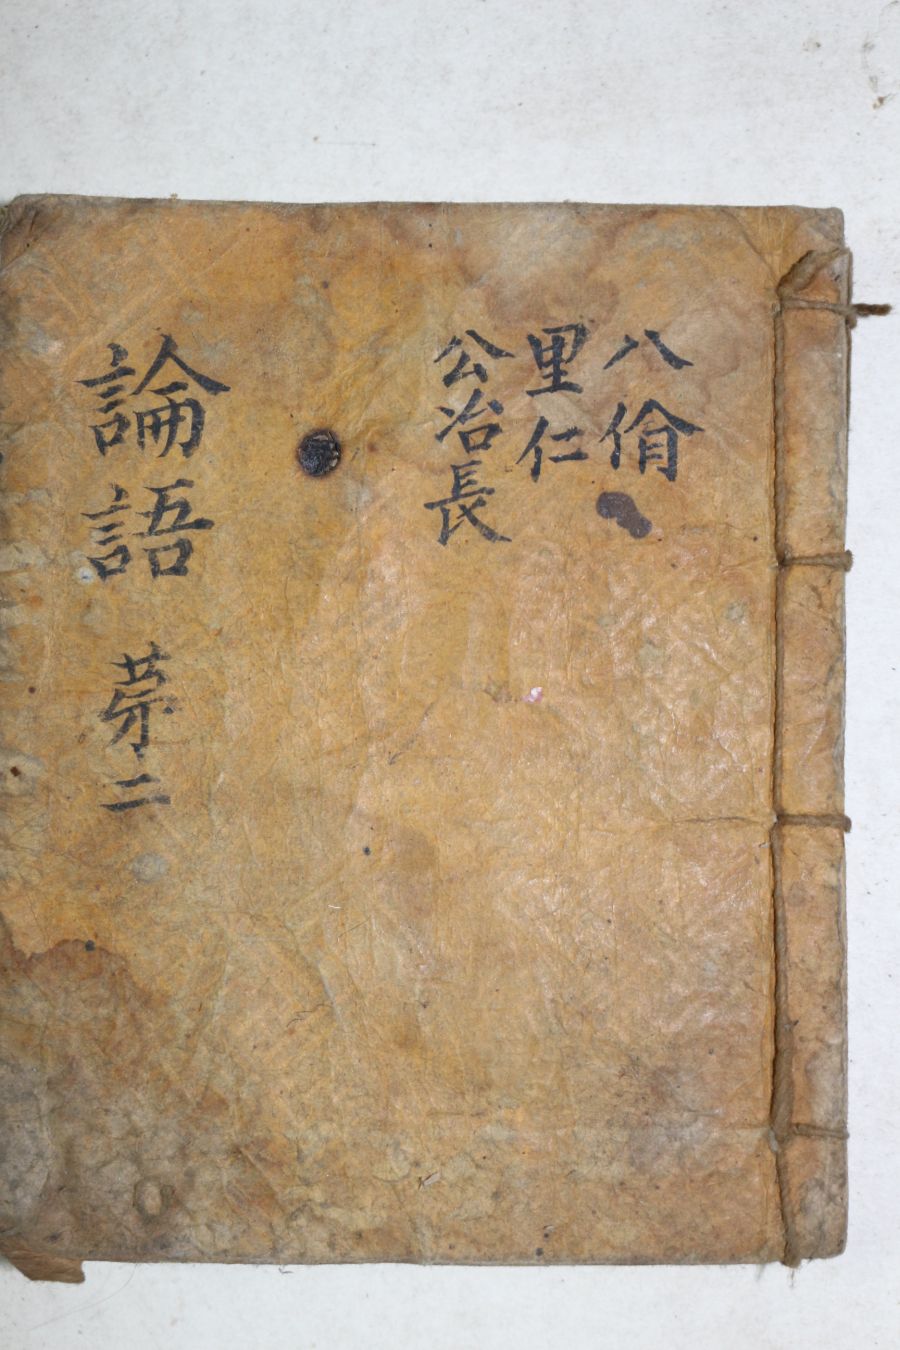 八佾
里仁
公冶長
論語 苐二